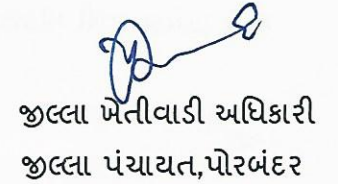 જીલ્લા ખેતીવાડી અધિકારી
જીલ્લા પંચાયત,પોરબંદર